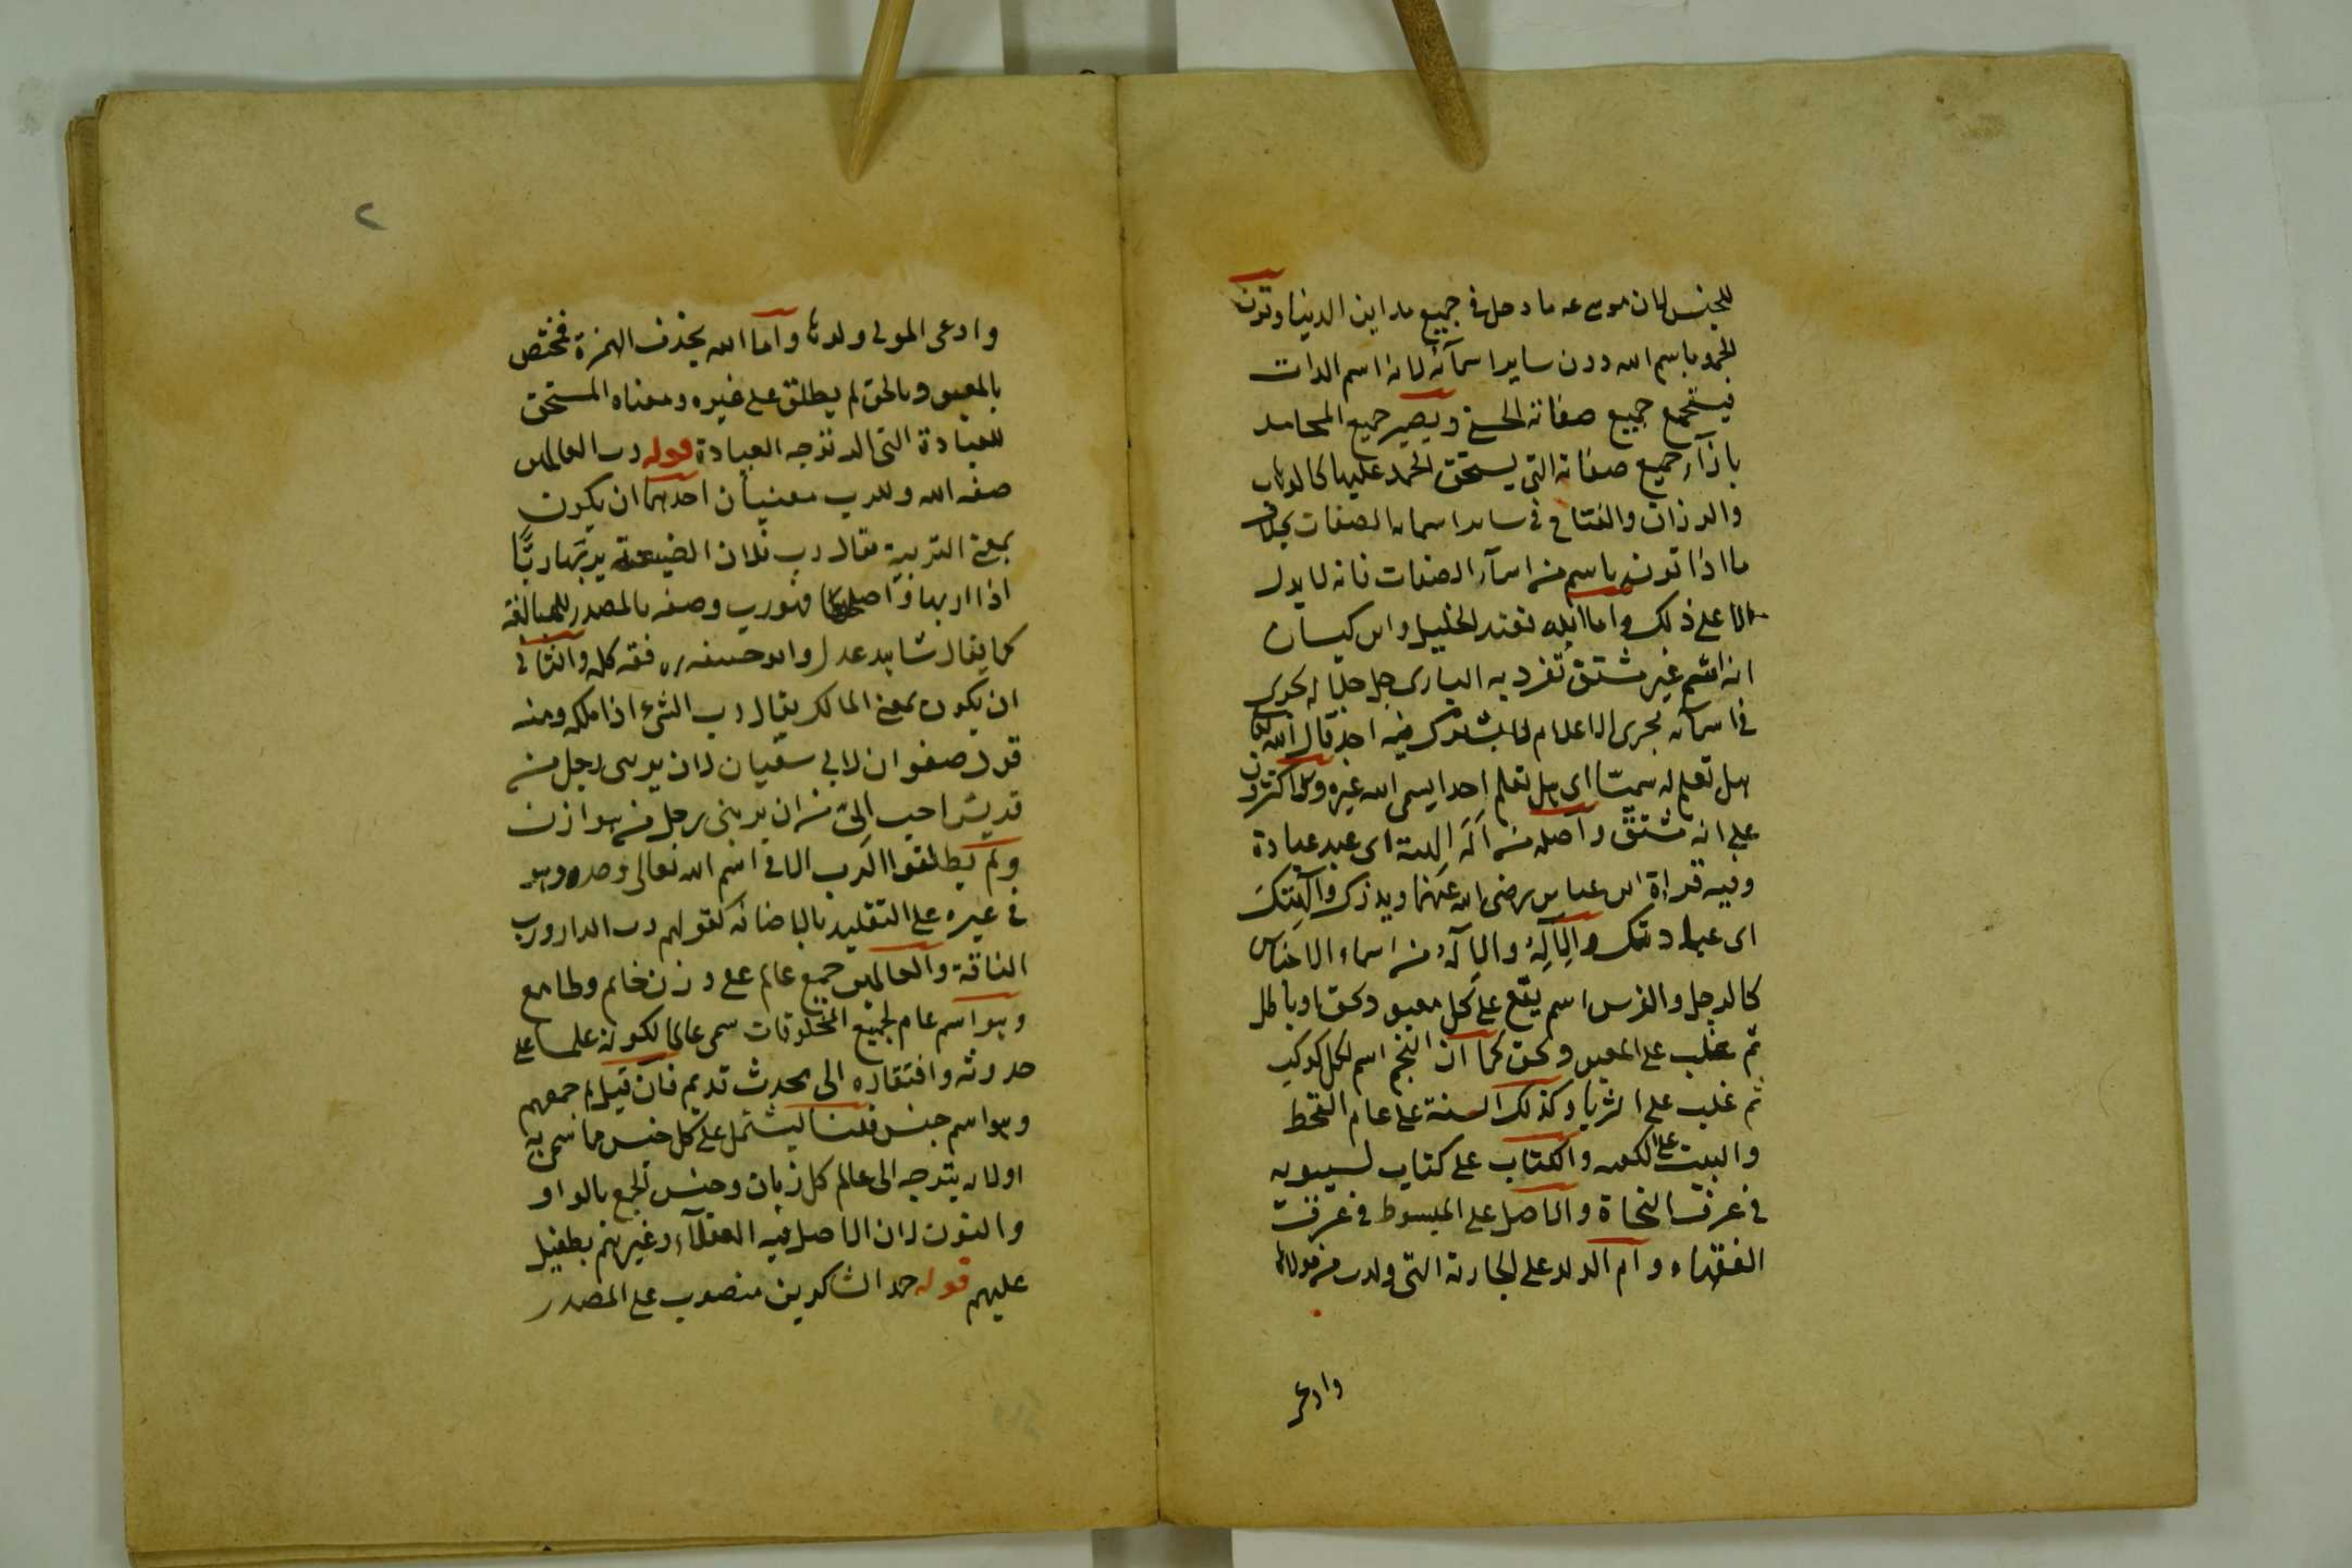 للجنس لان موسى عه ما دخل في جميع مداين الدنيا وقرن
الحمد باسم الله دون ساير اسمآئه لانه اسم الذات
فيستجمع جميع صفاته الحسنى ويصير جميع المحامد
بازآء جميع صفاته التي يستحق الحمد عليها كالوهاب
والرزاق والفتاح في ساير اسماء الصفات بخلاف
ما اذا قرن باسم من اسمآء الصفات فانه لا يدل
الا على ذلك واما الله فعند الخليل وابن كيسان
انه اسم غير مشتق تفرد به الباري جل جلاله يجري
في اسمائه مجرى الاعلام لا يشترك فيه احد قال الله تعا
هل تعلم له سميّا اي هل تعلم احدا يسمى الله غيره والاكثرون
على انه مشتق واصله من اَلَهَ الهة اي عبد عبادة
وفيه قراءة ابن عباس رضي الله عنهما ويذرك وآلهتك
اي عبادتك والاله والاله من اسماء الاجناس
كالرجل والفرس اسم يقع على كل معبود بحق او باطل
ثم غلب على المعبود بحق كما ان النجم اسم لكل كوكب
ثم غلب على الثريا وكذلك السنة على عام القحط
والبيت على الكعبه والكتاب على كتاب لسيبويه
في عرف النحاة والاصل على المبسوط في عرف
الفقهاء وام الولد على الجارية التي ولدت من مولاها
وادعى
٢
وادعى المولى ولدها واما الله بحذف الهمزة فمختص
بالمعبود بالحق لم يطلق على غيره ومعناه المستحق
للعبادة التي لا توجه العبادة قوله رب العالمين
صفه الله وللرب معنيان احدهما ان يكون
بمعنى التربية يقال رب فلان الضيعة يربّها ربّا
اذا ربها واصلحها فهو رب وصفه بالمصدر للمبالغة
كما يقال شاهد عدل وابو حنيفه ره فقه كله والثاني
ان يكون بمعنى المالك يقال رب الشيء اذا ملكه ومنه
قول صفوان لابي سفيان لان يربني رجل من
قريش احب اليّ من ان يربني رجل من هوازن
ولم يطلقوا الرب الا في اسم الله تعالى وحده وهو
في غيره على التقليد بالاضافه كقولهم رب الدار ورب
الناقة والعالمين جمع عالم على وزن خاتم وطابع
وهو اسم عام لجميع المخلوقات سمي عالما لكونه علما على
حدوثه وافتقاره الى محدث قديم فان قيل لم جمعهم
وهو اسم جنس قلنا ليشتمل على كل جنس ما سمي به
او لانه يتوجه الى عالم كل زمان وجنس الجمع بالواو
والنون لان الاصل فيه العقلآء وغيرهم بطفيل
عليهم قوله حمد الشاكرين منصوب على المصدر